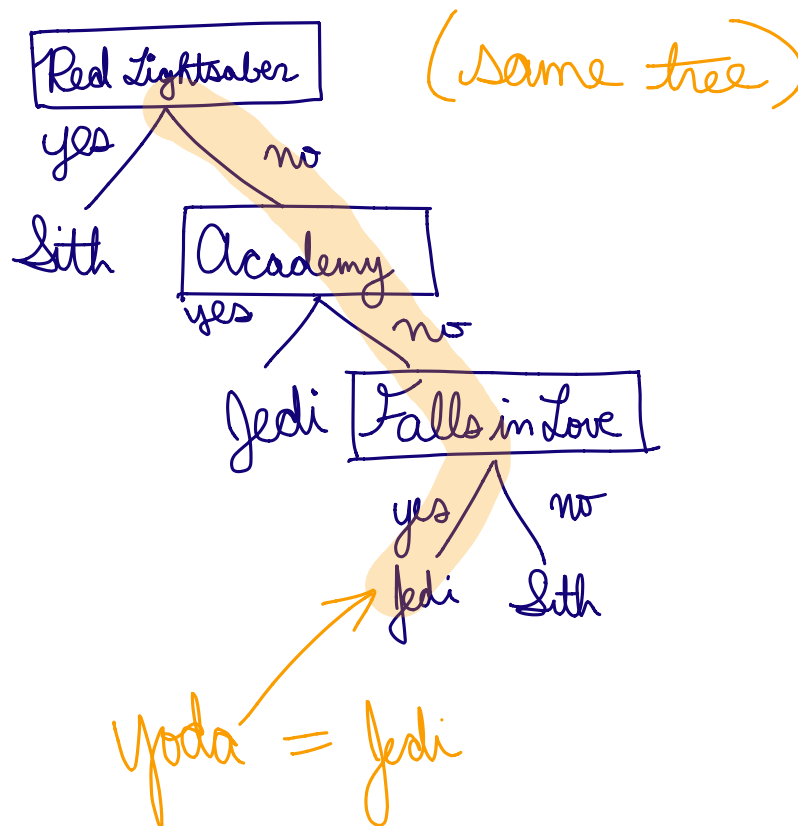 Red Lightsaber
(same tree)
yes
no
Sith
Academy
yes
no
Jedi
Falls in Love
yes
no
Jedi
Sith
yoda = Jedi